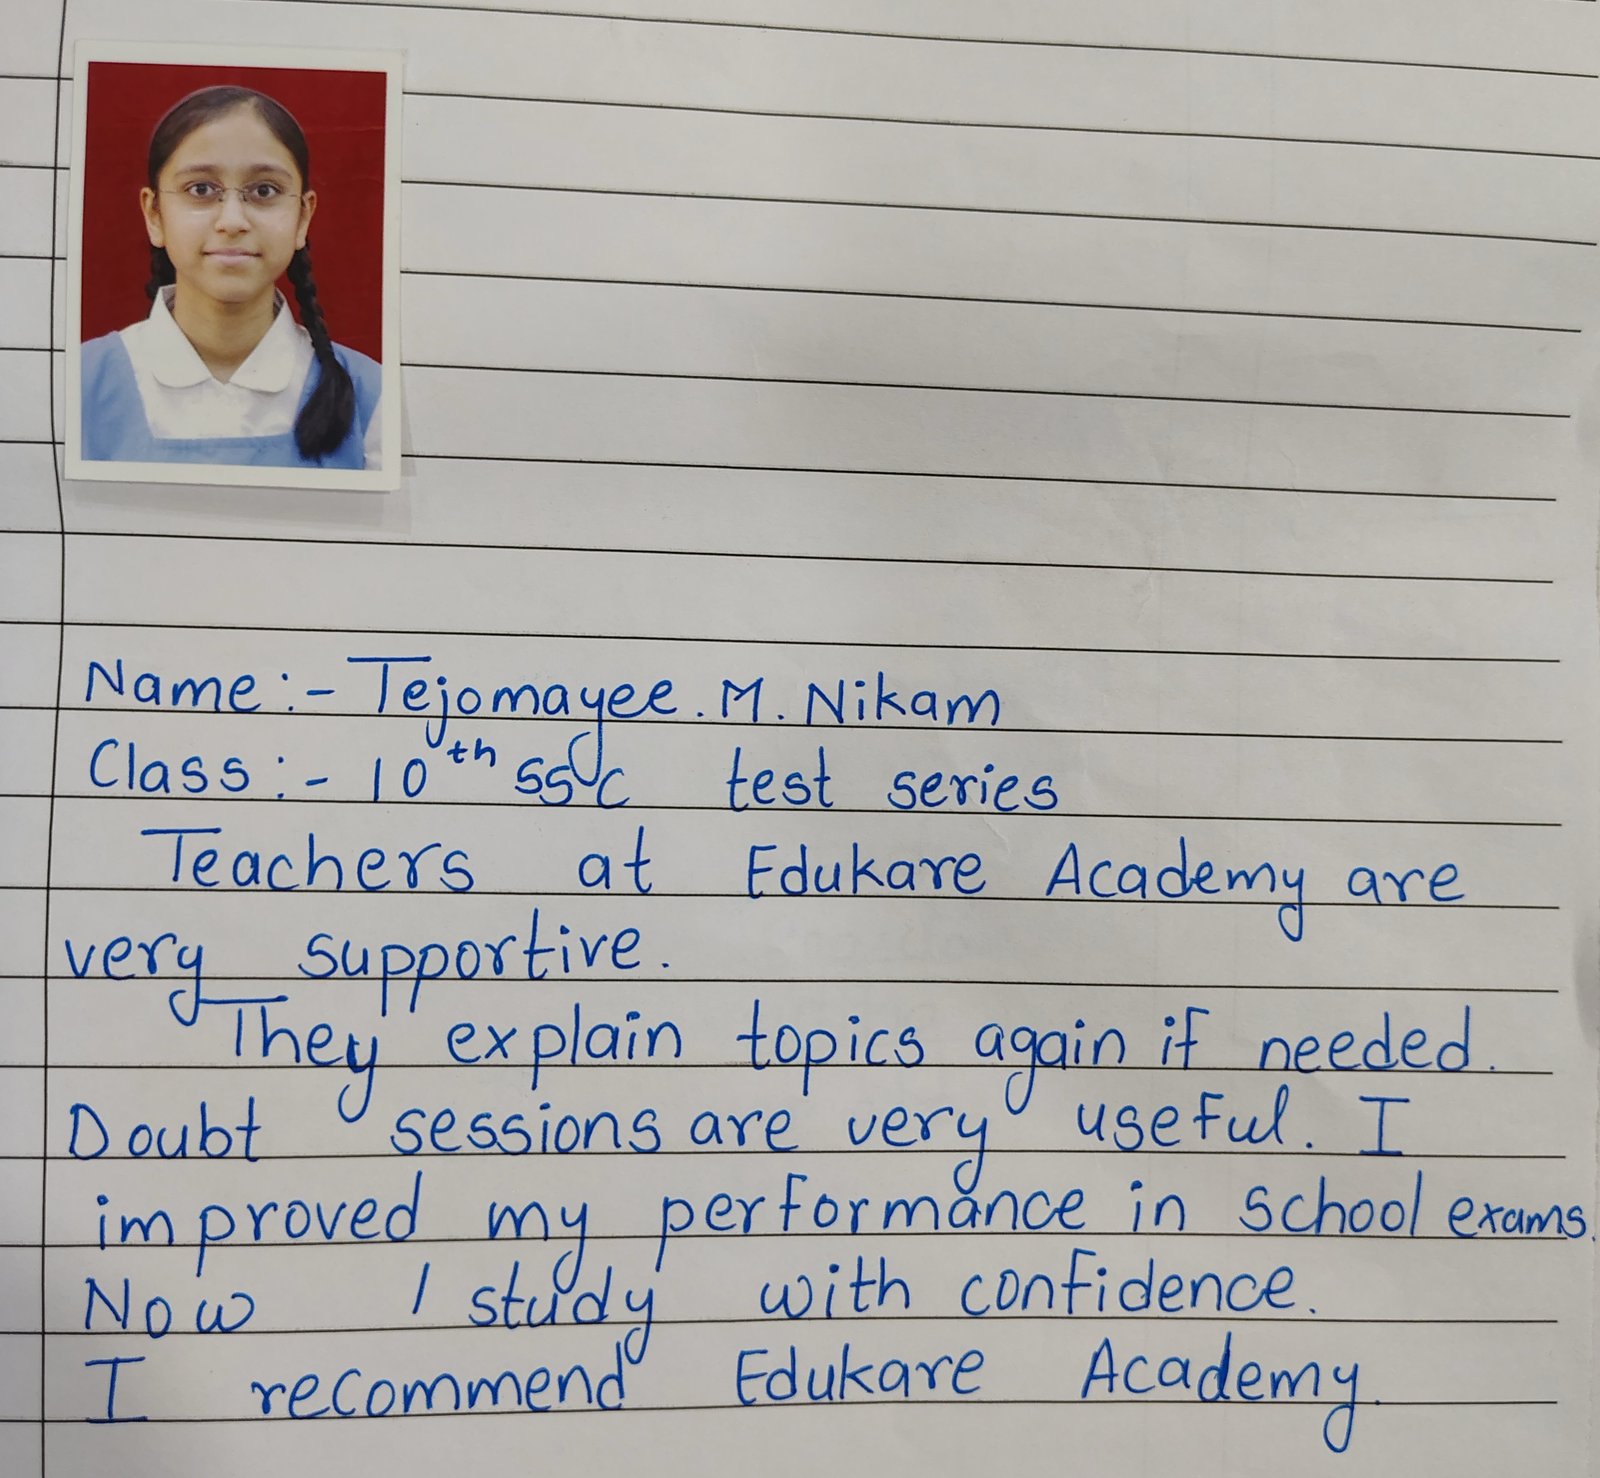 Name:- Tejomayee. M. Nikam
Class:- 10th SSC test series
Teachers at Edukare Academy are
very supportive.
They explain topics again if needed.
Doubt sessions are very useful. I
improved my performance in school exams.
Now I study with confidence.
I recommend Edukare Academy.